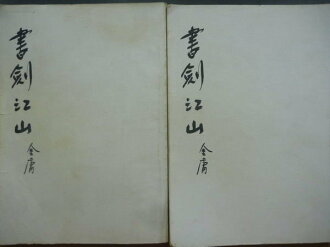 書劍江山
金庸
書劍江山
金庸